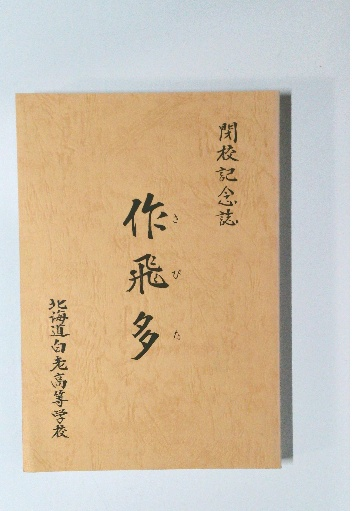 閉校記念誌
作飛多
さびた
北海道白老高等学校